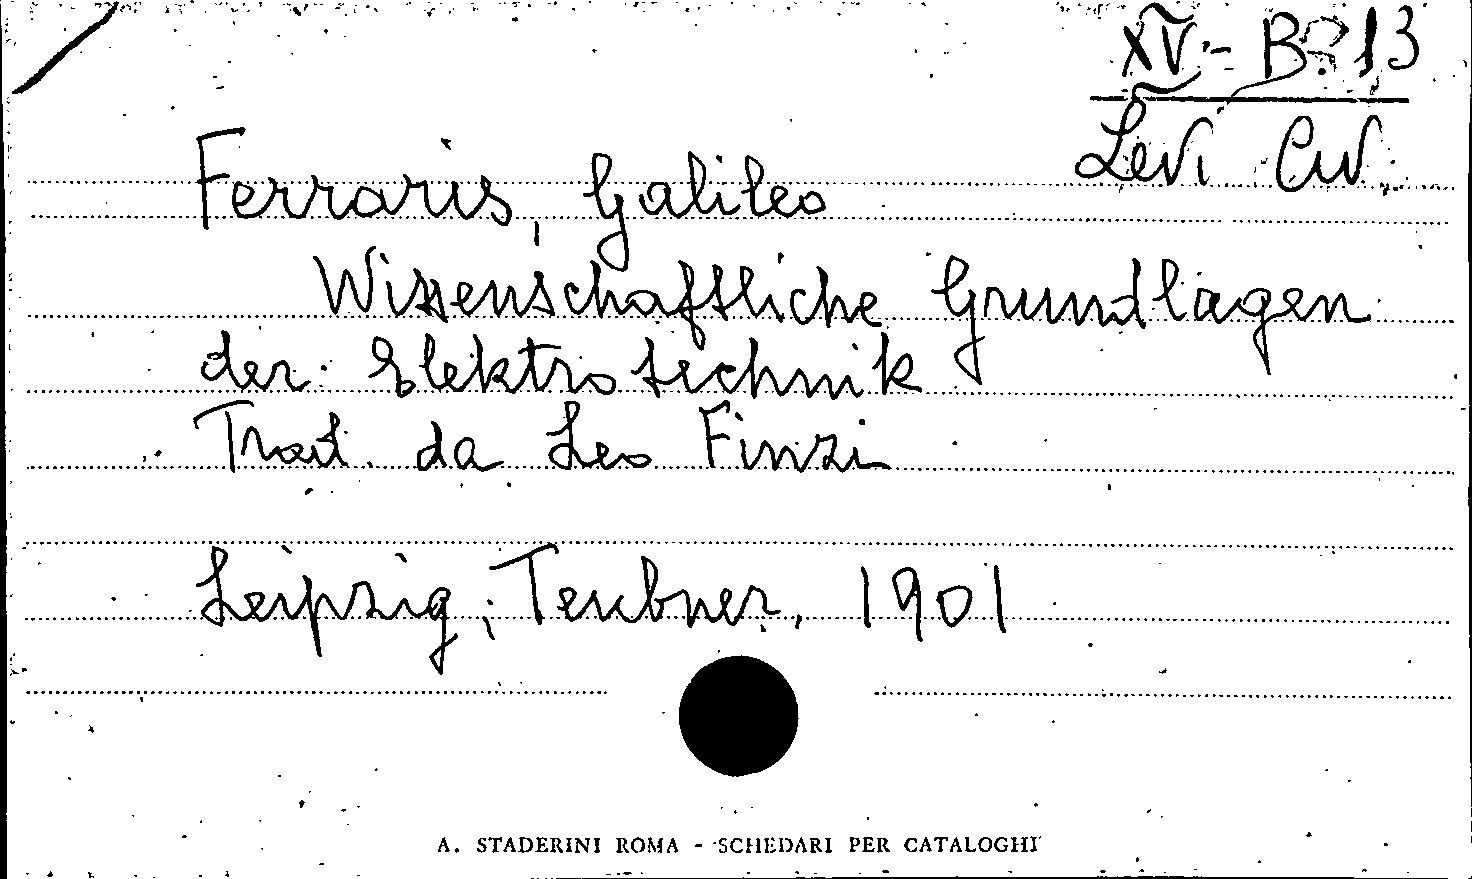 XV - B. 13
Levi Civ.
Ferraris, Galileo
Wissenschaftliche Grundlagen
der Elektrotechnik
Trad. da Leo Finzi
Leipzig, Teubner, 1901
A. STADERINI ROMA - SCHEDARI PER CATALOGHI